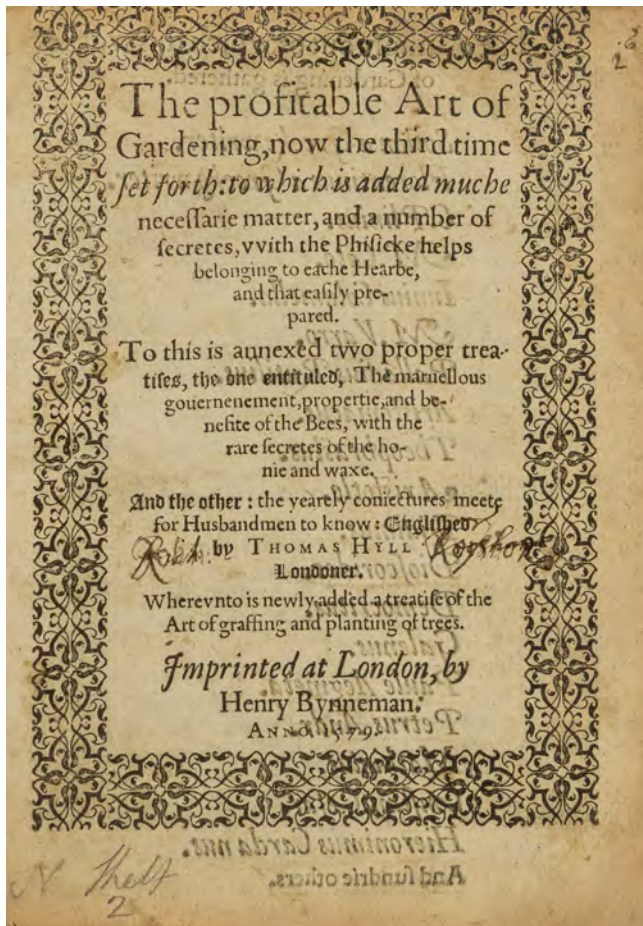 The profitable Art of
Gardening, now the third time
ſet forth: to which is added muche
neceſſarie matter, and a number of
ſecretes, vvith the Phiſicke helps
belonging to eache Hearbe,
and that eaſily pre-
pared.
To this is annexed tvvo proper trea-
tiſes, the one entituled, The maruellous
gouernenement, propertie, and be-
nefite of the Bees, with the
rare ſecretes of the ho-
nie and waxe.
And the other: the yearely coniectures meete
for Husbandmen to know: Engliſhed
by THOMAS HYLL
Londoner.
Wherevnto is newly added a treatiſe of the
Art of graffing and planting of trees.
Imprinted at London, by
Henry Bynneman.
ANNO. 1579.
Hieronimus Cardanus.
And ſundrie others.
Shelf
2